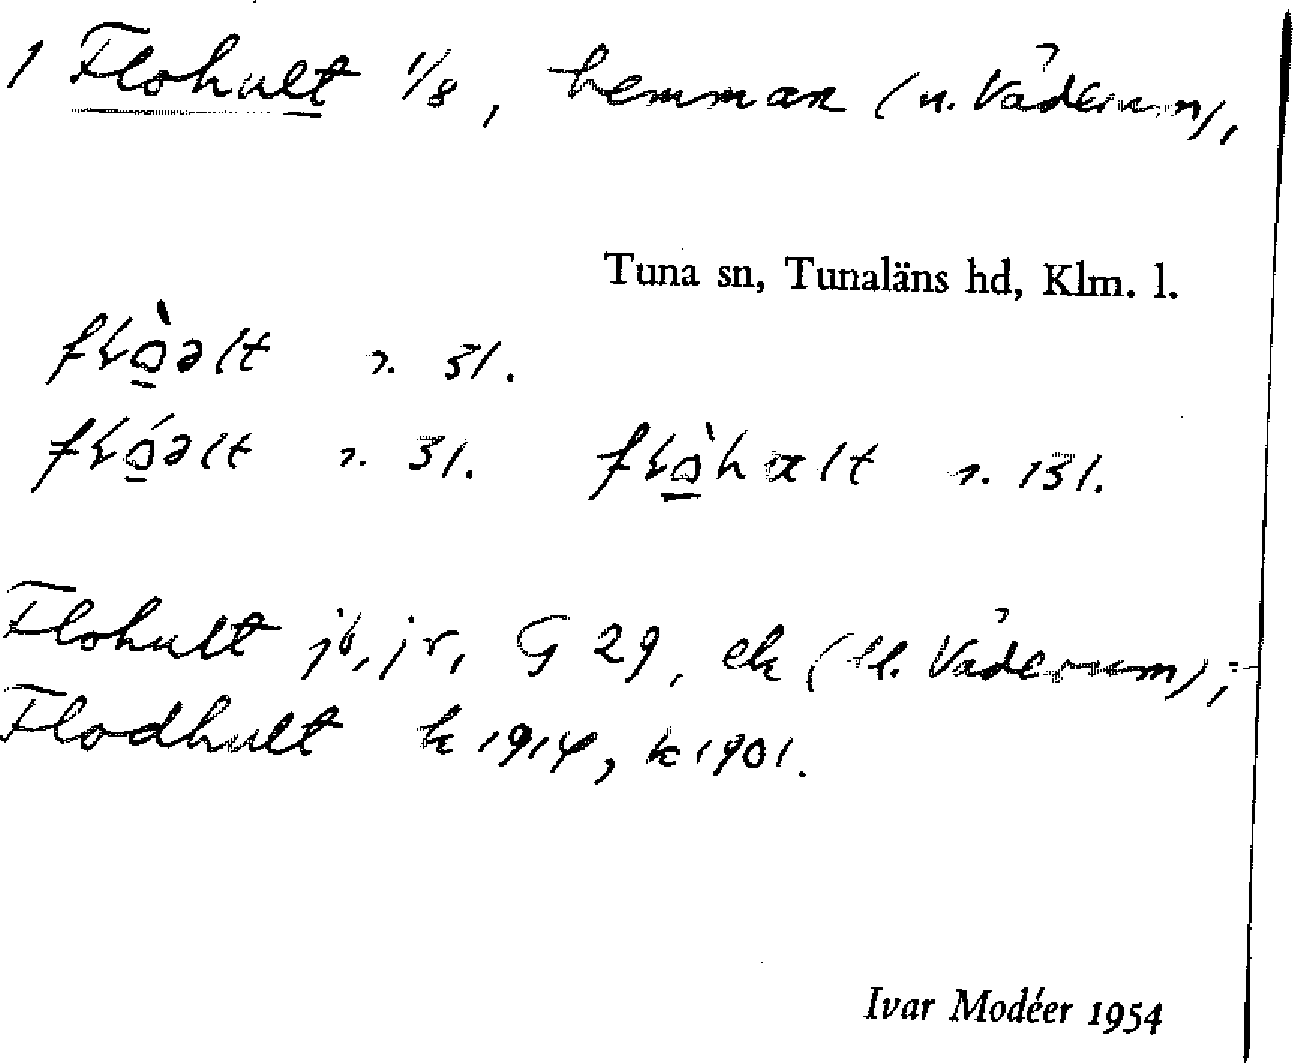 1 Flohult 1/8, hemman (u. Våderum),
Tuna sn, Tunaläns hd, Klm. l.
flò̲əlt s. 31.
fló̲əlt s. 31. flò̲hælt s. 131.
Flohult jb, jr, G 29, ek (tl. Våderum);
Flodhult k 1914, k 1901.
Ivar Modéer 1954